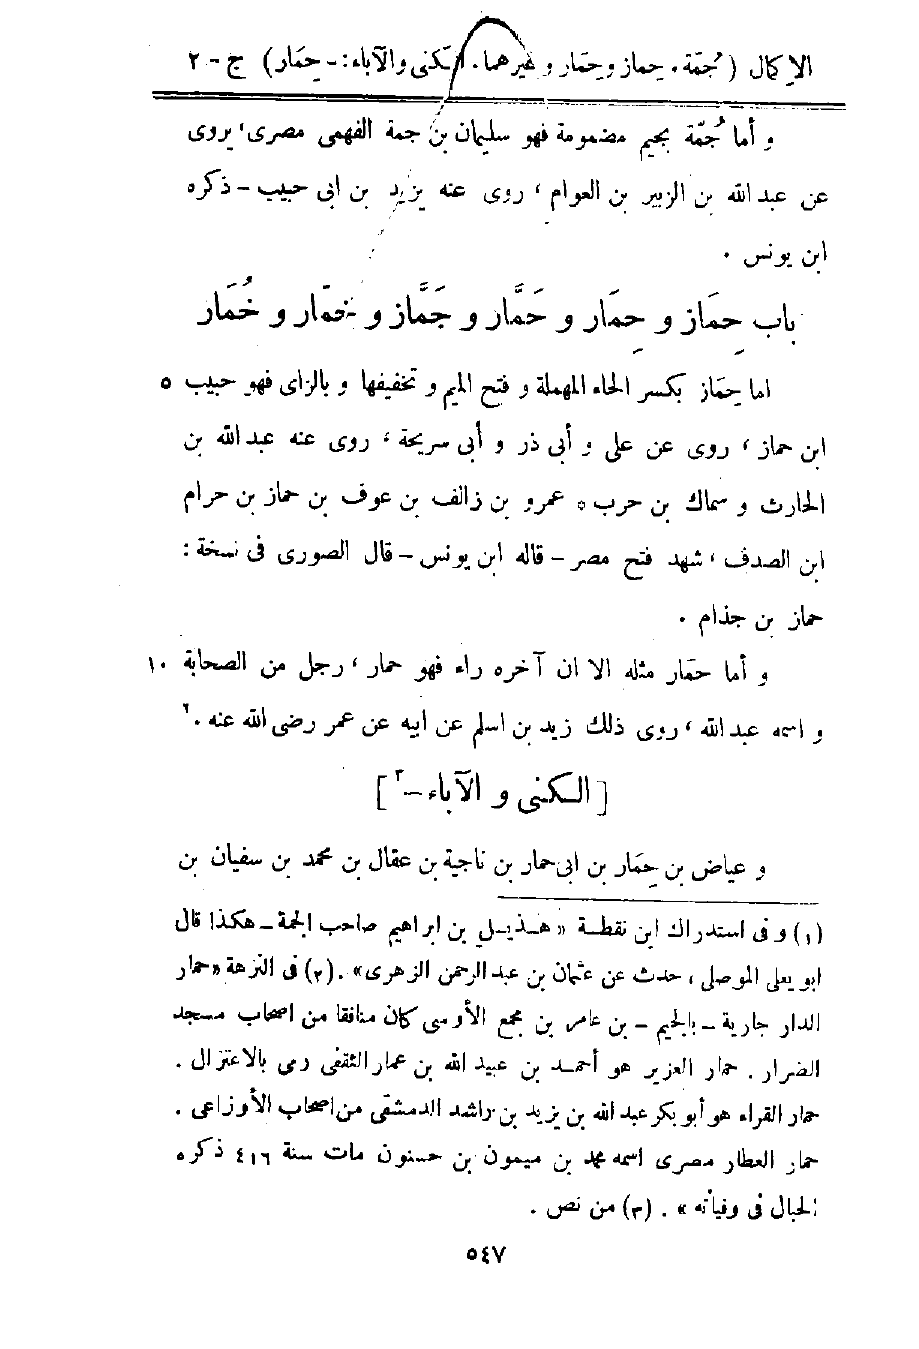 الاكمال (جُمّة. حِماز وحِمَار وغيرهما. الكنى والآباء: - حِمَار) ج - ٢
و أما جُمّة بجيم مضمومة فهو سليمان بن جمة الفهمى مصرى، يروى
عن عبد الله بن الزبير بن العوام، روى عنه يزيد بن ابى حبيب - ذكره
ابن يونس .
باب حِمَاز و حِمَار و حَمَّار و جَمَّاز و خمّار و خُمَار
اما حِمَاز بكسر الحاء المهملة و فتح الميم و تخفيفها و بالزاى فهو حبيب ٥
ابن حماز، روى عن على و أبى ذر و أبى سريحة، روى عنه عبد الله بن
الحارث و سماك بن حرب ٥ عمرو بن زالف بن عوف بن حماز بن حرام
ابن الصدف، شهد فتح مصر - قاله ابن يونس - قال الصورى فى نسخة:
حماز بن جذام .
و أما حمَار مثله الا ان آخره راء فهو حمار، رجل من الصحابة ١٠
و اسمه عبد الله، روى ذلك زيد بن اسلم عن ابيه عن عمر رضى الله عنه .٢
[الكنى و الآباء -٣]
و عياض بن حِمَار بن ابى حمار بن ناجية بن عقال بن محمد بن سفيان بن
(١) و فى استدراك ابن نقطة «هذيل بن ابراهيم صاحب الجمة - هكذا قال
ابو يعلى الموصلى، حدث عن عثمان بن عبد الرحمن الزهرى» . (٢) فى النزهة «حمار
الدار جارية - بالجيم - بن عامر بن مجمع الأوسى كان منافقا من اصحاب مسجد
الضرار . حمار العزير هو أحمد بن عبيد الله بن عمار الثقفى رمى بالاعتزال .
حمار القراء هو أبو بكر عبد الله بن يزيد بن راشد الدمشقى من اصحاب الأوزاعى .
حمار العطار مصرى اسمه محمد بن ميمون بن حسنون مات سنة ٤١٦ ذكره
الحبال فى وفياته» . (٣) من نص .
٥٤٧